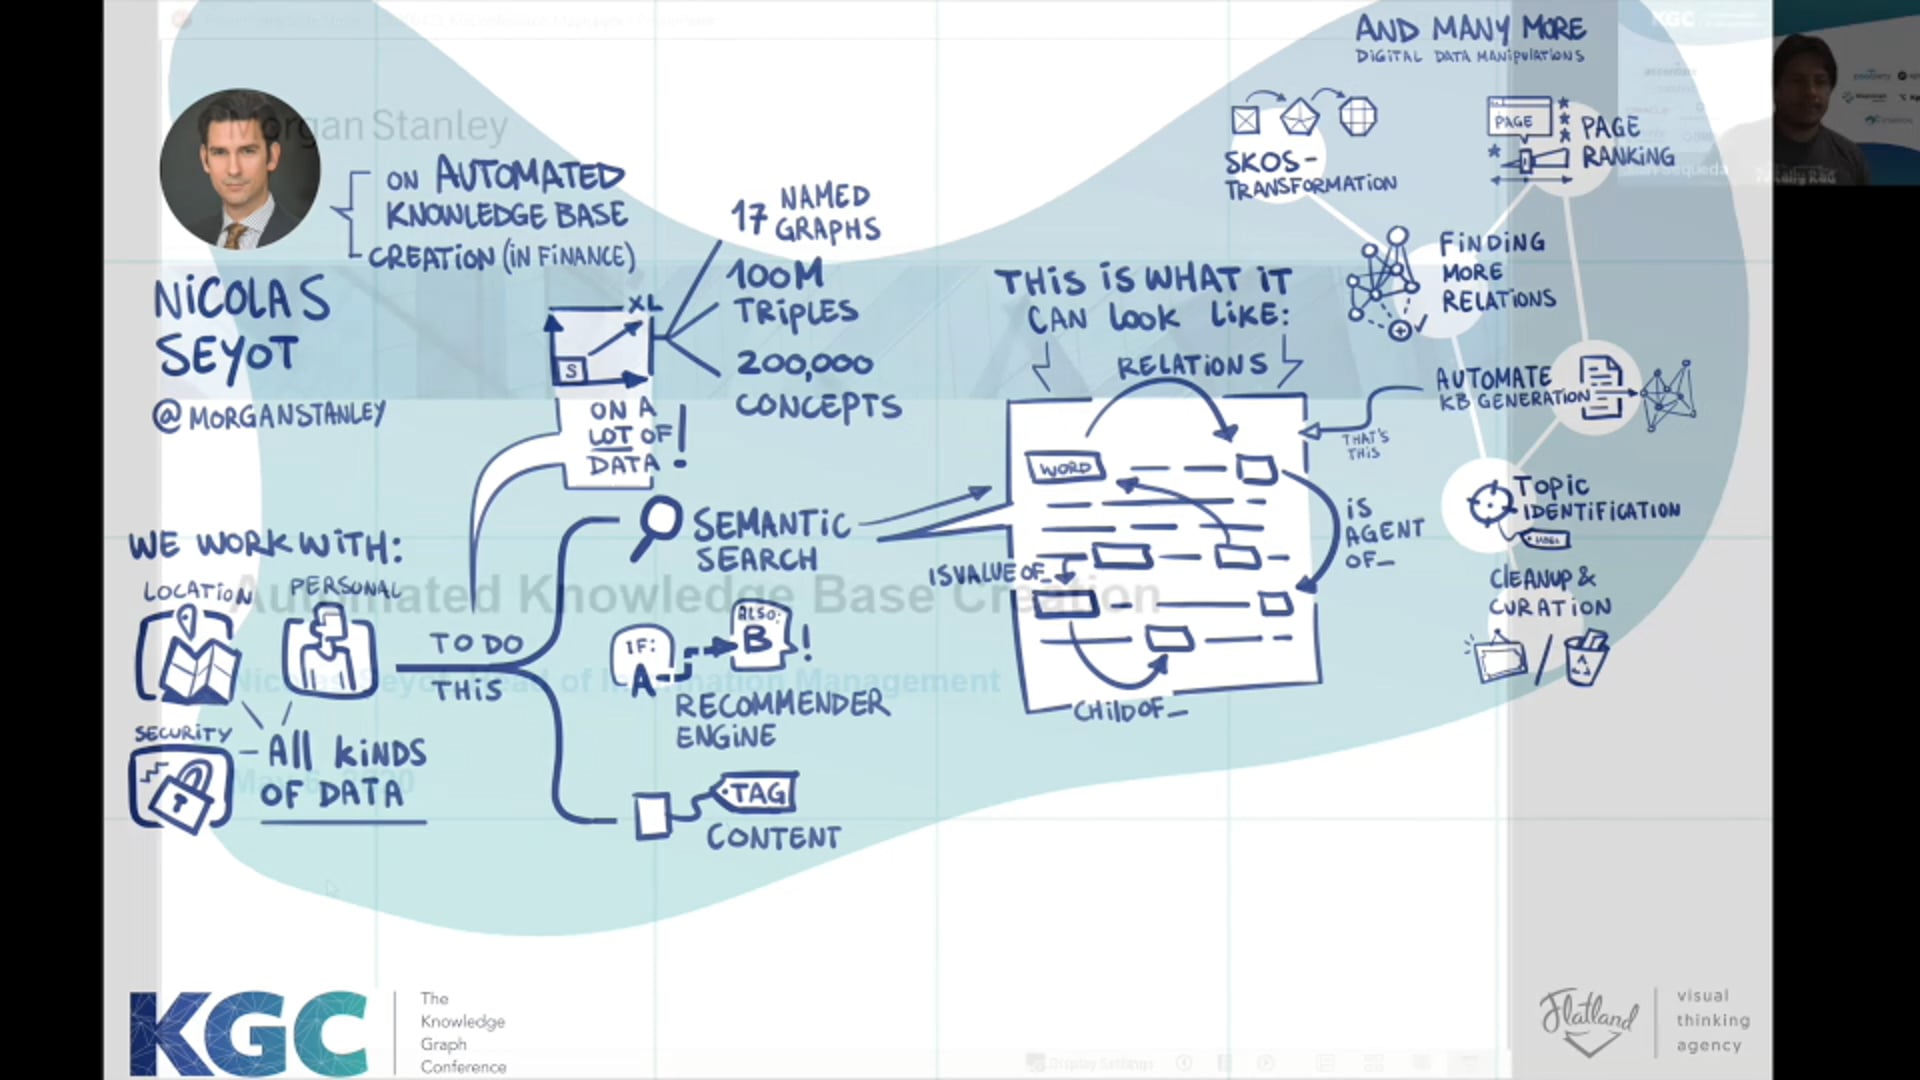 Morgan Stanley
ON AUTOMATED
KNOWLEDGE BASE
CREATION (IN FINANCE)
NICOLAS
SEYOT
@MORGANSTANLEY
WE WORK WITH:
LOCATION
PERSONAL
SECURITY
All KINDS
OF DATA
TO DO
THIS
XL
S
ON A
LOT OF
DATA !
17 NAMED
GRAPHS
100M
TRIPLES
200,000
CONCEPTS
SEMANTIC
SEARCH
IF:
A
ALSO:
B !
RECOMMENDER
ENGINE
TAG
CONTENT
THIS IS WHAT IT
CAN LOOK LIKE:
RELATIONS
WORD
IS VALUE OF_
IS
AGENT
OF_
CHILD OF_
THAT'S
THIS
AND MANY MORE
DIGITAL DATA MANIPULATIONS
SKOS-
TRANSFORMATION
PAGE
PAGE
RANKING
FINDING
MORE
RELATIONS
AUTOMATE
KB GENERATION
TOPIC
IDENTIFICATION
LABEL
CLEANUP &
CURATION
Automated Knowledge Base Creation
Nicolas Seyot, Head of Information Management
May 6, 2020
KGC
The
Knowledge
Graph
Conference
Display Settings
Flatland
visual
thinking
agency
KGC